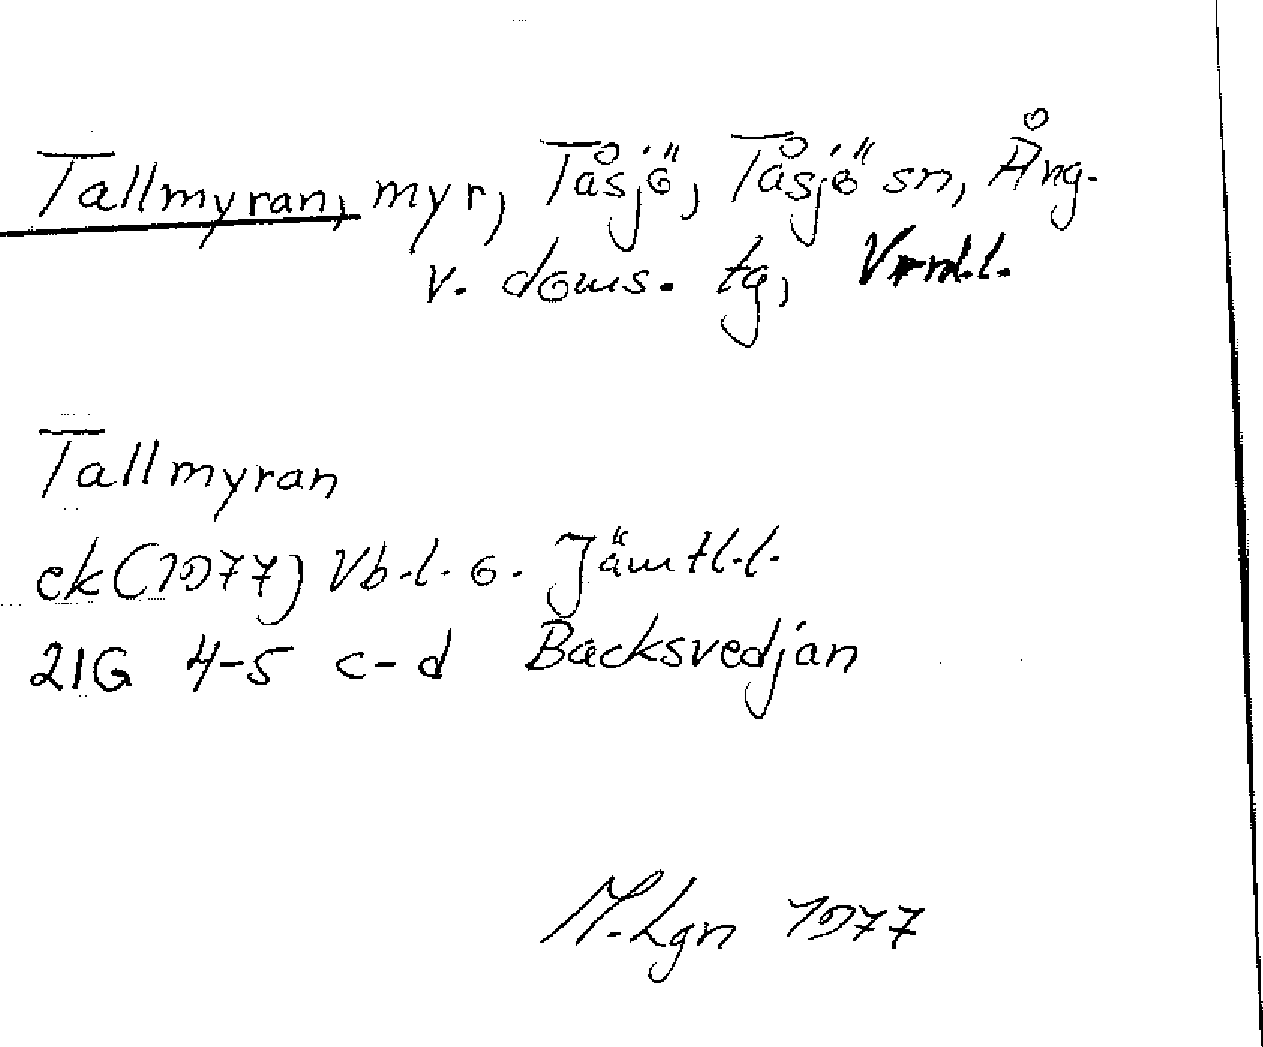 Tallmyran, myr, Tåsjö, Tåsjö sn, Ång.
v. doms. tg,
Tallmyran
ek (1977) Vb.l. o. Jämtl.l.
21G 4-5 c-d Backsvedjan
M.Lgn 1977